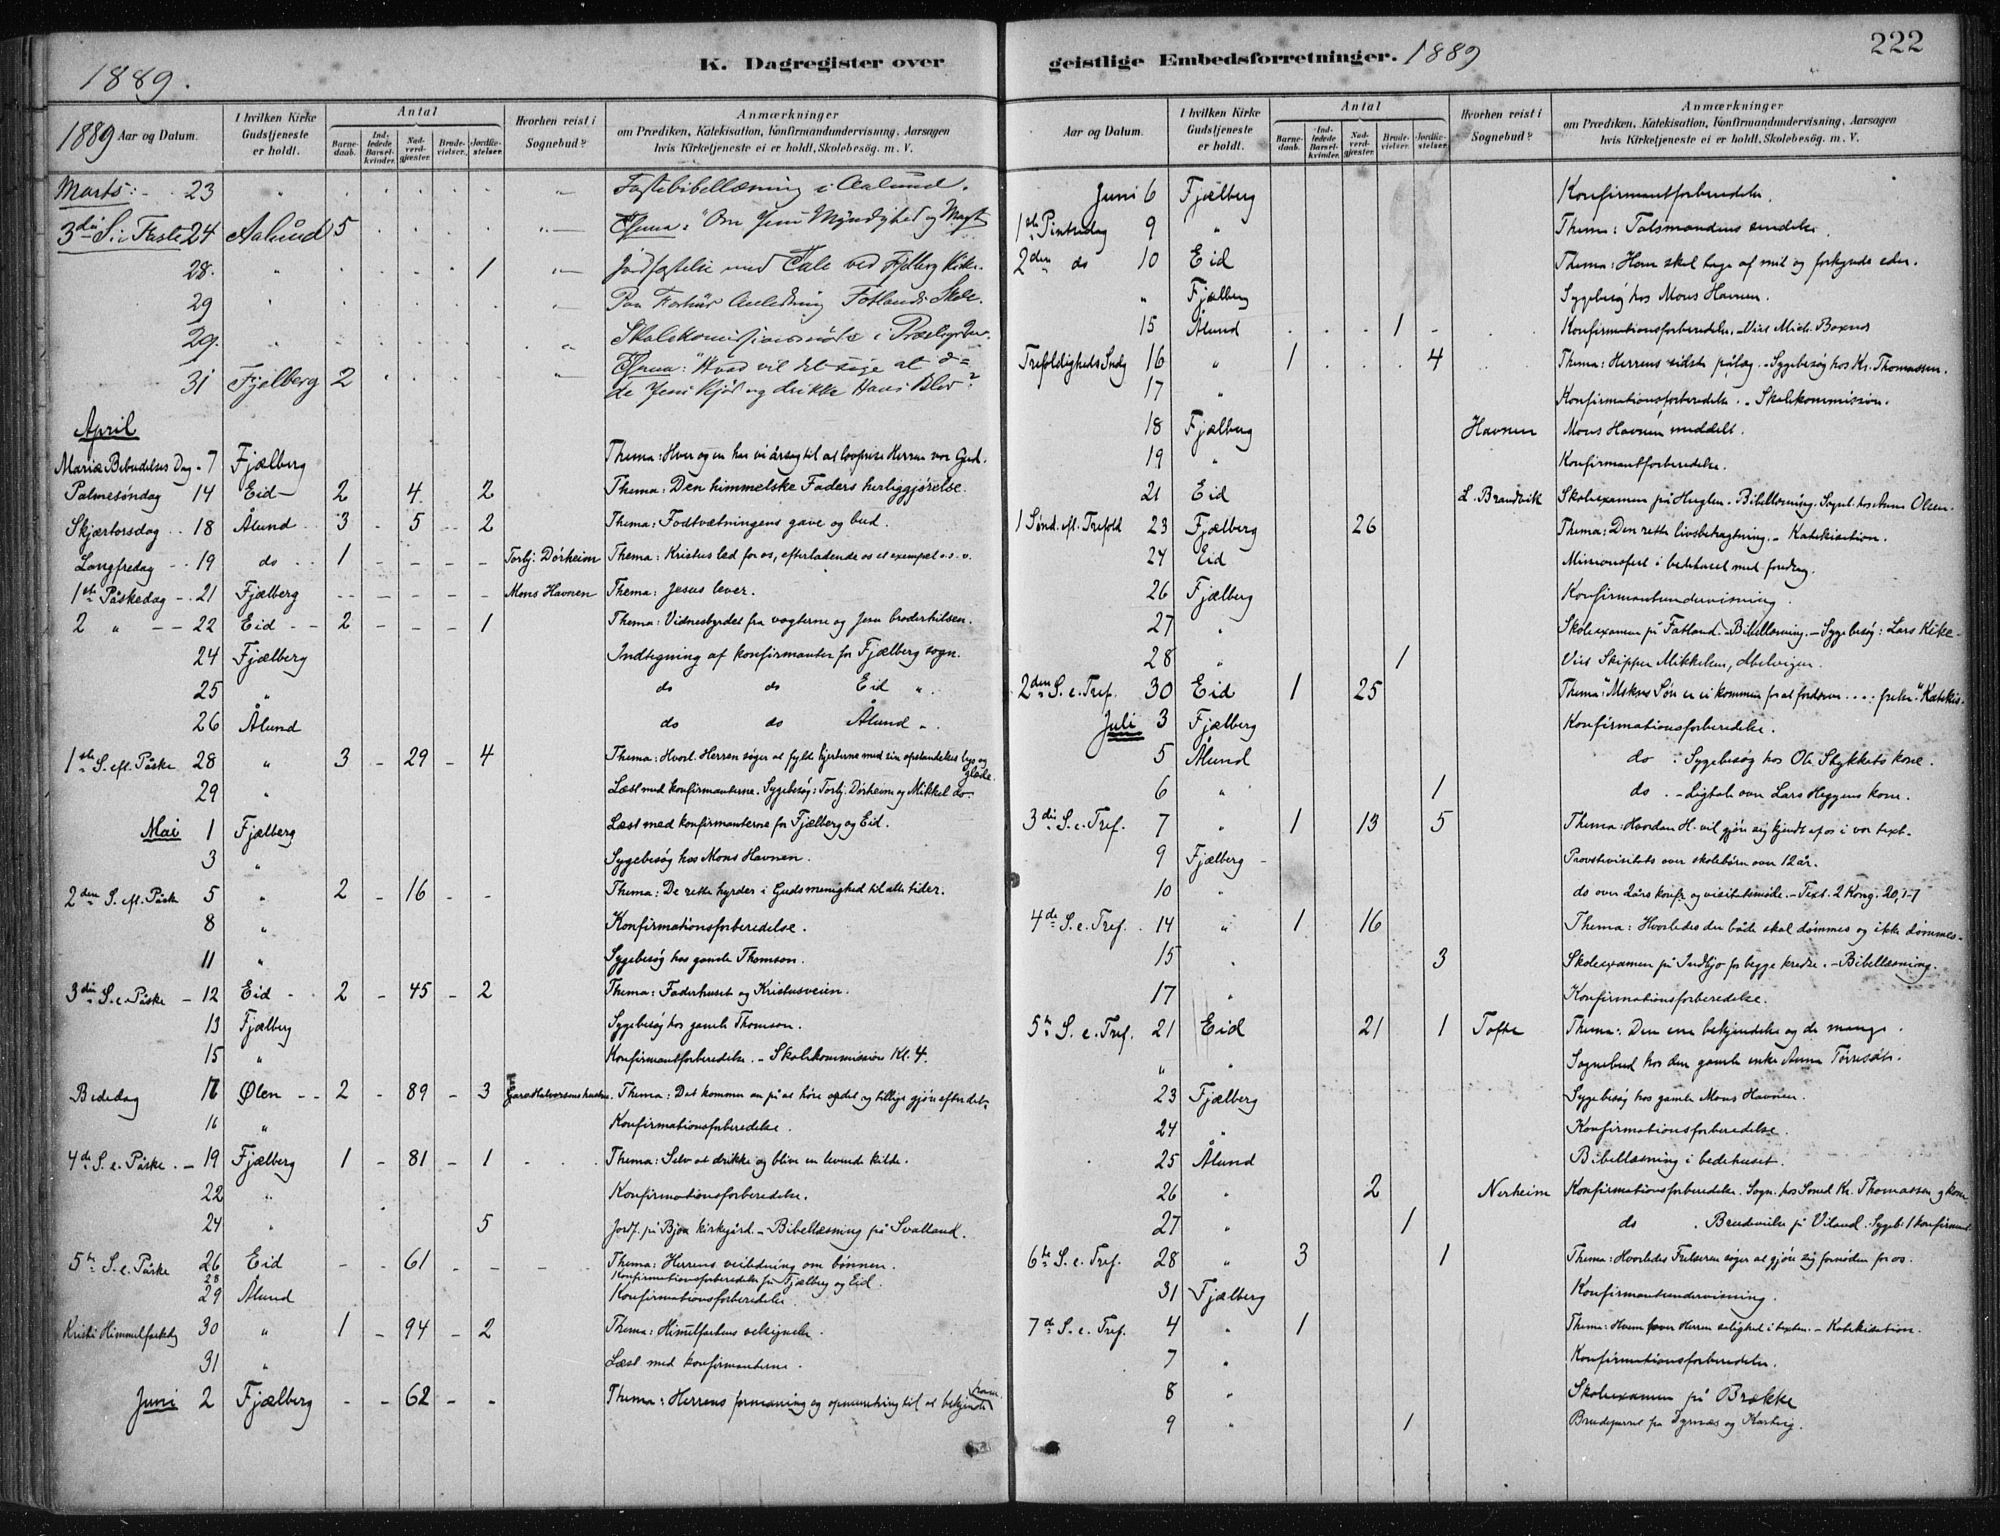 1889.
K. Dagregister over
1889 Aar og Datum.
I hvilken Kirke Gudstjeneste er holdt.
Antal
Barnedaab.
Indledede Barselkvinder.
Nadverdgjester.
Brudevielser.
Jordfæstelser.
Hvorhen reist i Sognebud?
Anmærkninger
om Prædiken, Katekisation, Konfirmandundervisning, Aarsagen
hvis Kirketjeneste ei er holdt, Skolebesøg. m. V.
Marts: 23 " Fastebibellæsning i Aalund.
3die S. i Faste 24 Aalund 5 Thema: "Om Jesu Myndighed og Magt
28. " 1 Jordfæstelse med Tale ved Fjelberg Kirke.
29 Fatlands Skole.
29. Skolekomissionsmøde i
31 Fjelberg 2 Thema: "Hvad vil det sige at
de Jesu Kjød og drikke Hans Blod?
April
Mariæ Bebudelses Dag 7 Fjælberg Thema: Hver og en har vi årsag til at lovprise Herren vor Gud.
Palmesøndag 14 Eid 2 - 4 - 2 Thema: Den himmelske Faders herliggjørelse.
Skjærtorsdag 18 Ålund 3 - 5 - 2 Thema: Fodtvætningens gave og bud.
Langfredag 19 do 1 - - - - Torbj. Dørheim Thema: Kristus led for os, efterladende os et exempel o. s. v.
1ste Påskedag 21 Fjælberg - - - - - Mons Havnen Thema: Jesus lever.
2 " 22 Eid 2 - - - 1 Thema: Vidnesbyrdet fra vogterne og Jesu broderhilsen.
24 Fjælberg Indtegning af konfirmanter for Fjælberg sogn.
25 " do do Eid "
26 Ålund do do Ålund "
1ste S. eft. Påske 28 " 3 - 29 - 4 Thema: Hvorl. Herren søger at fylde hjerterne med sin opstandelses lys og
glæde.
29 " Læst med konfirmanterne. Sygebesøg: Torbj. Dørheim og Mikkel do.
Mai 1 Fjælberg Læst med konfirmanterne for Fjælberg og Eid.
3 " Sygebesøg hos Mons Havnen.
2den S. eft. Påsk 5 " 2 - 16 - - Thema: De rette hyrder i Guds menighed til alle tider.
8 " Konfirmationsforberedelse.
11 " Sygebesøg hos gamle Thomson.
3die S. e. Påske 12 Eid 2 - 45 - 2 Thema: Faderhuset og Kristusveien.
13 Fjælberg Sygebesøg hos gamle Thomson.
15 " Konfirmantforberedelse. - Skolekommission Kl. 4.
Bededag 17 Ølen 2 - 89 - 3 Thema: Det kommer an på at høre ordet og tillige gjøre efter det.
16 " Konfirmationsforberedelse.
4de S. e. Påske 19 Fjælberg 1 - 81 - 1 Thema: Selv at drikke og blive en levende kilde.
22 " Konfirmationsforberedelse.
24 " 5 Jordf. på Bjoa kirkegård. - Bibellæsning på Svalland.
5te S. e. Påske 26 Eid - - 61 - - Thema: Herrens veiledning om bønnen.
28 Konfirmationsforberedelse for Fjælberg og Eid.
29 Ålund Konfirmationsforberedelse.
Kristi Himmelfartsdg 30 " 1 - 94 - 2 Thema: Himelfartens velsignelse.
31 " Læst med konfirmanterne.
Juni 2 Fjælberg - - 62 - - Thema: Herrens formaning og opmuntring til at bekjende ham
geistlige Embedsforretninger. 1889
222
Aar og Datum.
I hvilken Kirke Gudstjeneste er holdt.
Antal
Barnedaab.
Indledede Barselkvinder.
Nadverdgjester.
Brudevielser.
Jordfæstelser.
Hvorhen reist i Sognebud?
Anmærkninger
om Prædiken, Katekisation, Konfirmandundervisning, Aarsagen
hvis Kirketjeneste ei er holdt, Skolebesøg. m. V.
Juni 6 Fjælberg Konfirmantforberedelse.
1ste Pintsedag 9 " Thema: Talsmandens sendelse.
2den do 10 Eid Thema: Han skal tage af mit og forkynde eder.
" Fjælberg Sygebesøg hos Mons Havnen.
15 Ålund 1 - Konfirmationsforberedelse. - Viet Mich.
Trefoldigheds Sndg 16 " 1 4 Thema: Herrens sidste pålæg. - Sygebesøg hos Kr. Thomassen.
17 " Konfirmationsforberedelse. - Skolekommission.
18 Fjælberg Havnen Mons Havnen meddelt.
19 " Konfirmantforberedelse.
21 Eid L. Brandvik Skoleexamen på Huglen. - Bibellæsning. Sognb. hos Anna Olsen.
1 Sønd. eft. Trefold 23 Fjælberg 26 Thema: Den rette livsbetragtning. - Katekisation.
24 Eid Missionsfest i bedehuset med foredrag.
26 Fjælberg Konfirmantundervisning.
27 " Skoleexamen på Fatland. - Bibellæsning. - Sygebesøg: Lars Eike
28 " 1 Viet Skipper Mikkelsen,
2den S. e. Tref. 30 Eid 1 25 Thema "Mskns Søn er ei kommen for at fordærve .... frelse." Katekis-
Juli 3 Fjælberg Konfirmationsforberedelse.
5 Ålund do : Sygebesøg hos Ole Stykkets kone.
6 " 1 do . - Ligtale over Lars Heggens kone.
3die S. e. Tref. 7 " 1 13 5 Thema: Hvordan H. vil gjøre sig kjendt af os i vor text.
9 Fjælberg Provstevisitats over skolebørn over 12 år.
10 " do over 2 års konfr og visitatsmøde. - Text. 2 Kong. 20, 1-7
4de S. e. Tref. 14 " 1 16 Thema: Hvorledes der både skal dømmes og ikke dømmes.
15 " 3 Skoleexamen på Indbjo for begge kredse. - Bibellæsning.
17 " Konfirmationsforberedelse.
5te S. e. Tref. 21 Eid 21 1 Tofte Thema: Den ene bekjendelse og de mange.
" " Sognebud hos den gamle enke Anna
23 Fjælberg Sygebesøg hos gamle Mons Havnen.
24 " Konfirmationsforberedelse.
25 Ålund Bibellæsning i bedehuset.
26 " 2 Nerheim Konfirmationsforberedelse. Sogn. hos Kr. Thomassen og kone
27 " 1 do . Brudevielse på Viland. Sygeb. 1 konfirmand
6te S. e. Tref. 28 " 3 1 Thema: Hvorledes Frelseren søger at gjøre sig fornøden for os.
31 Fjælberg Konfirmantundervisning.
7de S. e. Tref. 4 " 1 Thema: Herren salighed i texten. - Katekisation.
7 " Konfirmationsforberedelse.
8 " Skoleexamen på Brække
9 " 1 Brudeparret fra